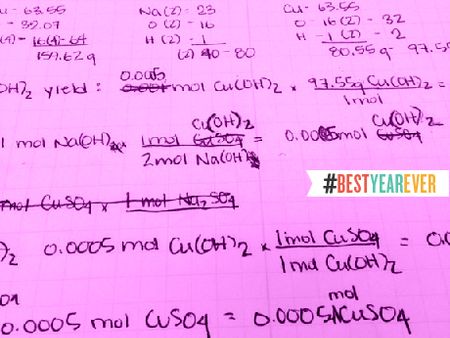 Cu - 63.55 Na(2) = 23 Cu - 63.55
- 32.07 O(2) - 16 O - 16(2) - 32
(4) - 16(4)-64 H (2) - 1 H - 1(2) - 2
159.62g (2) 40-80 80.55g - 97.55
OH)2 yield : 0.005 mol Cu(OH)2 × 97.55g Cu(OH)2 =
1mol
Cu(OH)2 Cu(OH)2
1 mol Na(OH) × 1mol CuSO4 = 0.0005mol CuSO4
2mol Na(OH)
#BESTYEAREVER
mol CuSO4 × 1 mol Na2SO4
)2 0.0005 mol Cu(OH)2 × 1mol CuSO4 = 0.0
1mol Cu(OH)2
mol
0.0005 mol CuSO4 = 0.0005 CuSO4